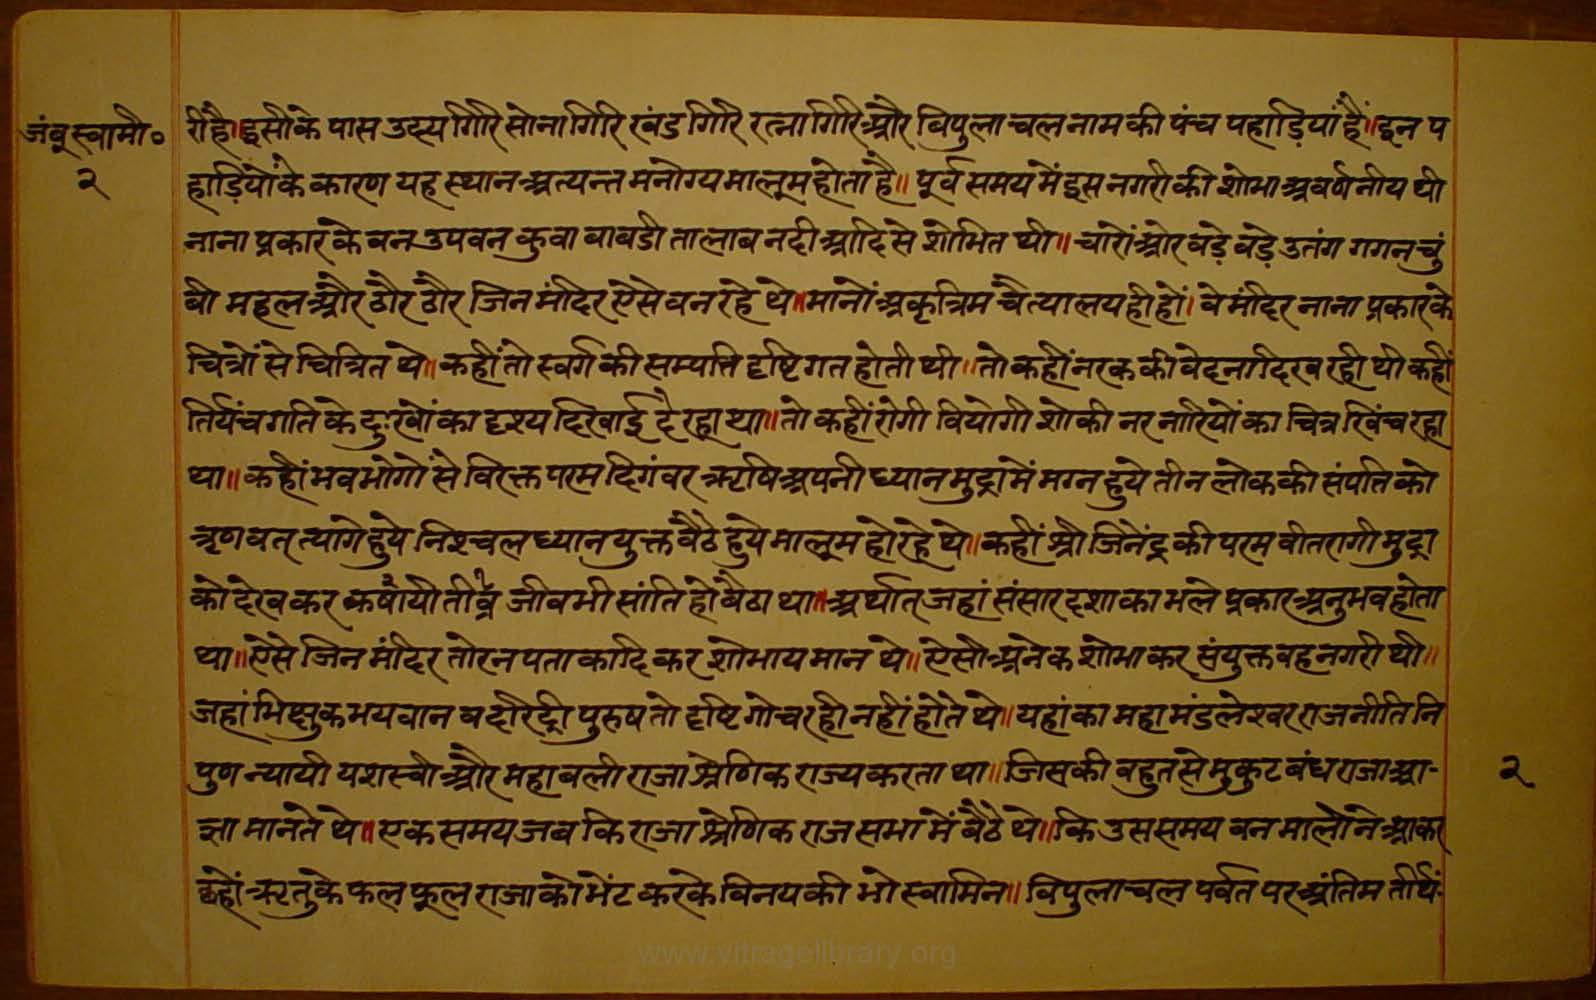 जंबूस्वामी०
२
री है॥ इसी के पास उदय गिरि सोना गिरि खंड गिरि रत्ना गिरि और विपुला चल नाम की पंच पहाड़ियां हैं॥ इन प
हाड़ियों के कारण यह स्थान अत्यन्त मनोग्य मालूम होता है॥ पूर्व समय में इस नगरी की शोभा अवर्णनीय थी
नाना प्रकार के वन उपवन कुवा बाबडी तालाब नदी आदि से शोभित थी॥ चारों ओर बड़े बड़े उतंग गगन चुं
बी महल और ठौर ठौर जिन मंदिर ऐसे बन रहे थे॥ मानों अकृत्रिम चैत्यालय ही हों। वे मंदिर नाना प्रकार के
चित्रों से चित्रित थे॥ कहीं तो स्वर्ग की सम्पत्ति दृष्टि गत होती थी॥ तो कहीं नरक की वेदना दिख रही थी कहीं
तिर्यंच गति के दुःखों का दृश्य दिखाई दे रहा था॥ तो कहीं रोगी वियोगी शोकी नर नारियों का चित्र खिंच रहा
था॥ कहीं भव भोगों से विरक्त परम दिगंबर ऋषि अपनी ध्यान मुद्रा में मग्न हुये तीन लोक की संपत्ति को
त्रृण वत् त्यागे हुये निश्चल ध्यान युक्त बैठे हुये मालूम हो रहे थे॥ कहीं श्री जिनेंद्र की परम वीतरागी मुद्रा
को देख कर कषायी तीव्र जीव भी सांति हो बैठा था॥ अर्थात् जहां संसार दशा का भले प्रकार अनुभव होता
था॥ ऐसे जिन मंदिर तोरन पताकादि कर शोभायमान थे॥ ऐसी अनेक शोभा कर संयुक्त वह नगरी थी॥
जहां भिक्षुक भयवान व दरिद्री पुरुष तो दृष्टि गोचर ही नहीं होते थे॥ यहां का महा मंडलेश्वर राजनीति नि
पुण न्यायी यशस्वी और महाबली राजा श्रेणिक राज्य करता था॥ जिसकी बहुत से मुकुट बंध राजा आ-
२
ज्ञा मानते थे॥ एक समय जब कि राजा श्रेणिक राज सभा में बैठे थे॥ कि उस समय वन माली ने आकर
छहों ऋतु के फल फूल राजा को भेंट करके विनय की भो स्वामिन॥ विपुलाचल पर्वत पर अंतिम तीर्थं-
www.vitragelibrary.org